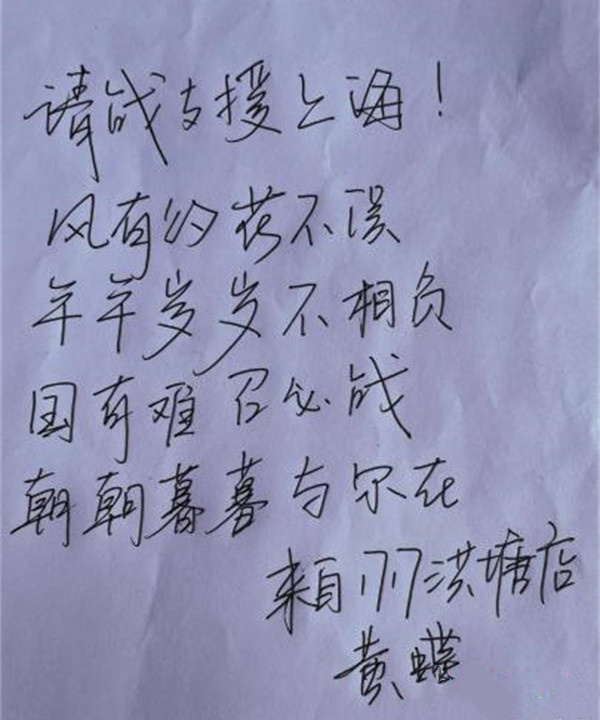 请战支援上海！
风有约花不误
年年岁岁不相负
国有难召必战
朝朝暮暮与尔在
来自177洪塘店
黄